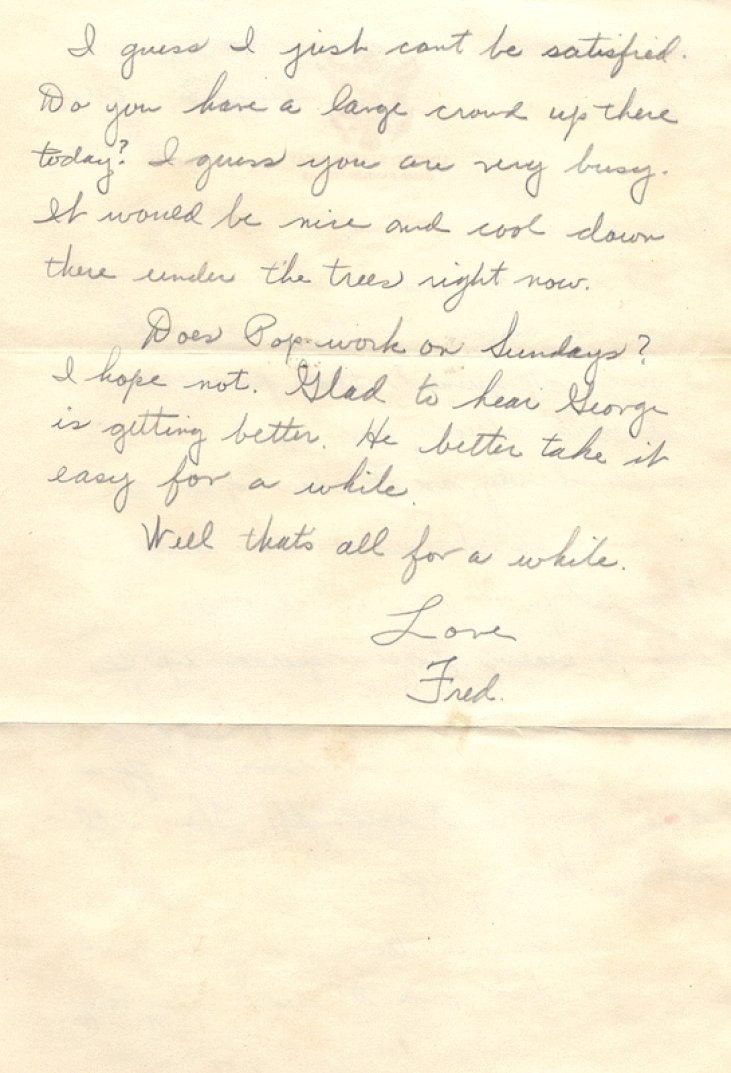 I guess I just cant be satisfied.
Do you have a large crowd up there
today? I guess you are very busy.
It would be nice and cool down
there under the trees right now.
Does Pop work on Sundays?
I hope not. Glad to hear George
is getting better. He better take it
easy for a while.
Well thats all for a while.
Love
Fred.